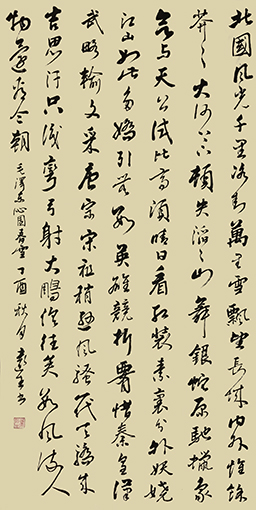 北國風光千里冰封萬里雪飄望長城內外惟餘
莽々大河上下頓失滔々山舞銀蛇原馳蠟象
欲與天公試比高須晴日看紅裝素裹分外妖嬈
江山如此多嬌引無數英雄競折腰惜秦皇漢
武略輸文采唐宗宋祖稍遜風騷一代天驕成
吉思汗只識彎弓射大鵰俱往矣數風流人
物還看今朝
毛澤東沁園春雪丁酉秋月